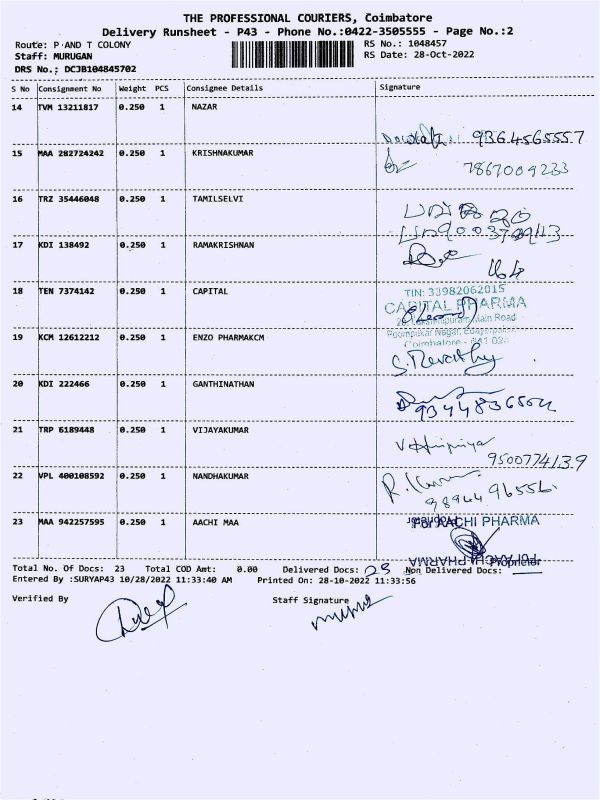 THE PROFESSIONAL COURIERS, Coimbatore
Delivery Runsheet - P43 - Phone No.:0422-3505555 - Page No.:2
Route: P AND T COLONY
RS No.: 1048457
Staff: MURUGAN
RS Date: 28-Oct-2022
DRS No.: DCJB104845702
S No Consignment No Weight PCS Consignee Details Signature
14 TVM 13211817 0.250 1 NAZAR
9364565557
15 MAA 282724242 0.250 1 KRISHNAKUMAR
7867009233
16 TRZ 35446048 0.250 1 TAMILSELVI
17 KDI 138492 0.250 1 RAMAKRISHNAN
18 TEN 7374142 0.250 1 CAPITAL
TIN: 33982062015
CAPITAL PHARMA
Main Road
Poompukar Nagar,
19 KCM 12612212 0.250 1 ENZO PHARMAKCM
Coimbatore - 641 02
S. Revathy
20 KDI 222466 0.250 1 GANTHINATHAN
9344836502
21 TRP 6189448 0.250 1 VIJAYAKUMAR
9500774139
22 VPL 400108592 0.250 1 NANDHAKUMAR
R. Kumar
98944 96556
23 MAA 942257595 0.250 1 AACHI MAA
For AACHI PHARMA
Proprietor
Total No. Of Docs: 23 Total COD Amt: 0.00 Delivered Docs: 23 Non Delivered Docs:
Entered By :SURYAP43 10/28/2022 11:33:40 AM Printed On: 28-10-2022 11:33:56
Verified By
Staff Signature